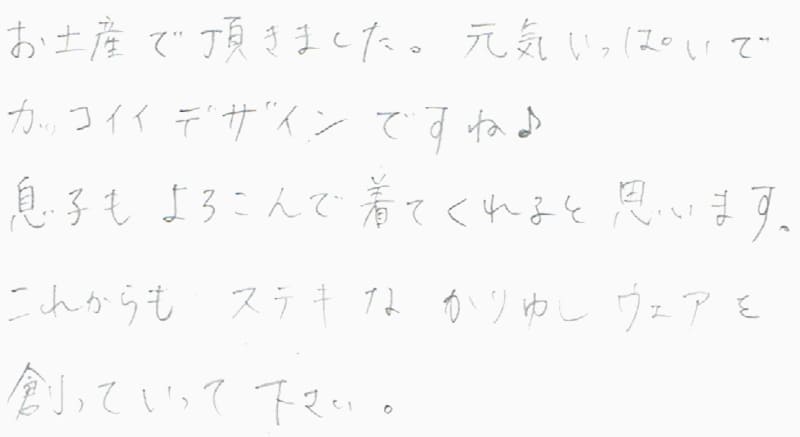 お土産で頂きました。元気いっぱいで
カッコイイデザインですね♪
息子もよろこんで着てくれると思います。
これからもステキなかりゆしウェアを
創っていって下さい。